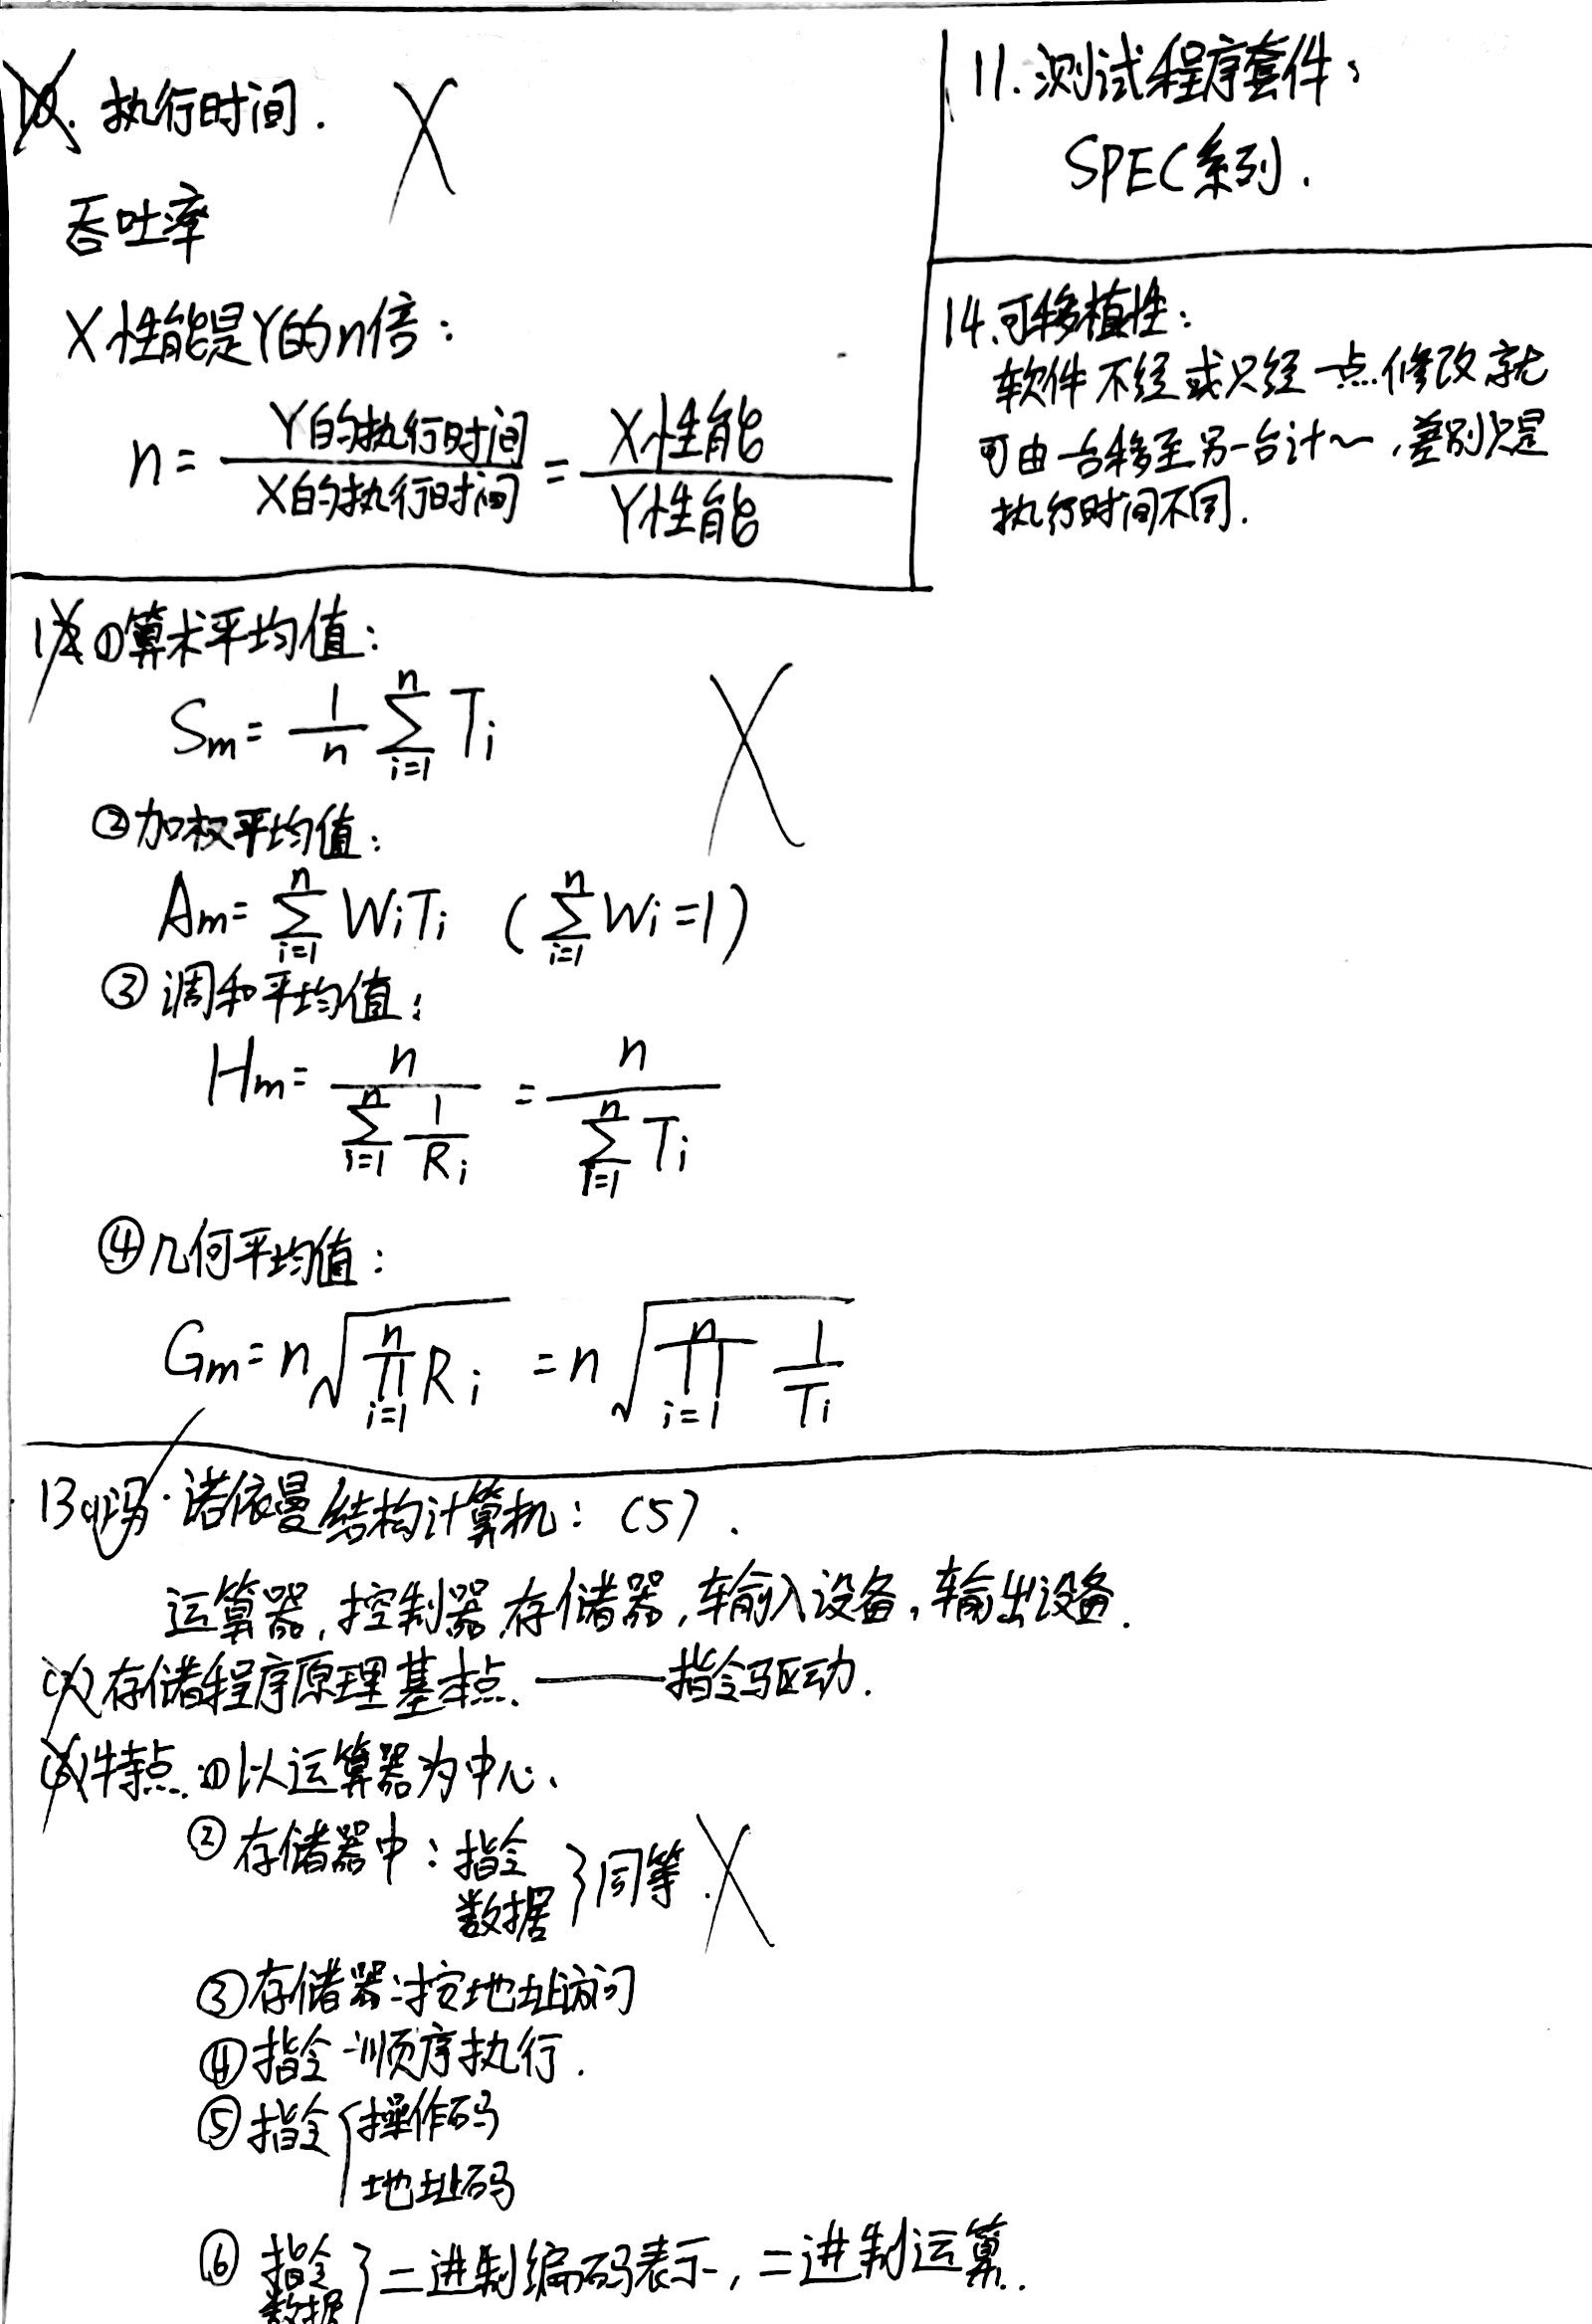 10. 执行时间.
吞吐率
X性能是Y的n倍:
n = Y的执行时间 / X的执行时间 = X性能 / Y性能
11. 测试程序套件:
SPEC系列.
14. 可移植性:
软件不经或只经一点修改就
可由一台移至另一台计~,差别只是
执行时间不同.
12 ①算术平均值:
Sm = 1/n ∑(i=1..n) Ti
②加权平均值:
Am = ∑(i=1..n) WiTi (∑(i=1..n) Wi = 1)
③调和平均值:
Hm = n / ∑(i=1..n) 1/Ri = n / ∑(i=1..n) Ti
④几何平均值:
Gm = n√(∏(i=1..n) Ri) = n√(∏(i=1..n) 1/Ti)
13 (1)冯·诺依曼结构计算机: (5).
运算器,控制器,存储器,输入设备,输出设备.
(2)存储程序原理基本点.——指令驱动.
(3)特点.①以运算器为中心、
②存储器中:指令
数据 } 同等.
③存储器:按地址访问
④指令-顺序执行.
⑤指令 { 操作码
地址码
⑥ 指令
数据 } 二进制编码表示,二进制运算.